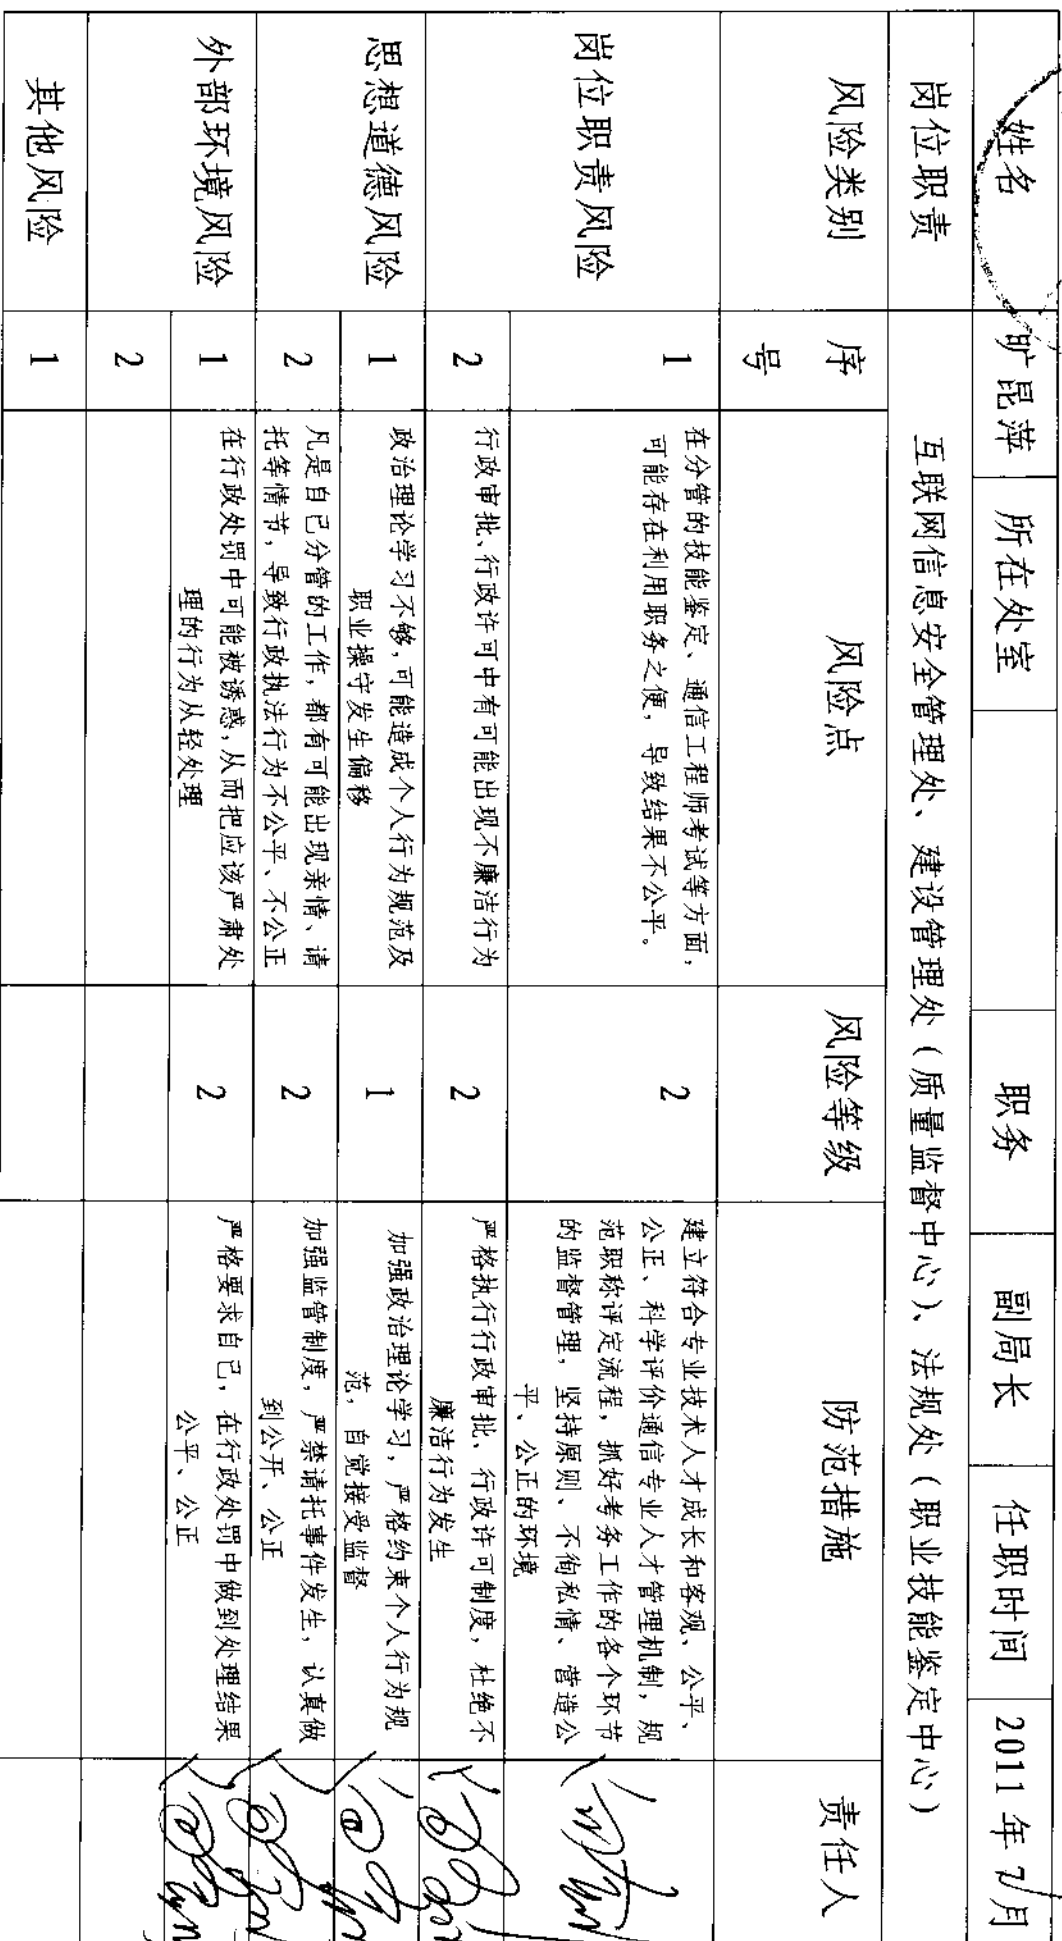 姓名 旷昆萍 所在处室 职务 副局长 任职时间 2011年7月
岗位职责 互联网信息安全管理处、建设管理处（质量监督中心）、法规处（职业技能鉴定中心）
风险类别 序号 风险点 风险等级 防范措施 责任人
岗位职责风险
1
在分管的技能鉴定、通信工程师考试等方面，
可能存在利用职务之便，导致结果不公平。
2
建立符合专业技术人才成长和客观、公平、
公正、科学评价通信专业人才管理机制，规
范职称评定流程，抓好考务工作的各个环节
的监督管理，坚持原则、不徇私情、营造公
平、公正的环境
2
行政审批、行政许可中有可能出现不廉洁行为
2
严格执行行政审批、行政许可制度，杜绝不
廉洁行为发生
思想道德风险
1
政治理论学习不够，可能造成个人行为规范及
职业操守发生偏移
1
加强政治理论学习，严格约束个人行为规
范，自觉接受监督
2
凡是自己分管的工作，都有可能出现亲情、请
托等情节，导致行政执法行为不公平、不公正
2
加强监管制度，严禁请托事件发生，认真做
到公开、公正
外部环境风险
1
在行政处罚中可能被诱惑，从而把应该严肃处
理的行为从轻处理
2
严格要求自己，在行政处罚中做到处理结果
公平、公正
2
其他风险
1